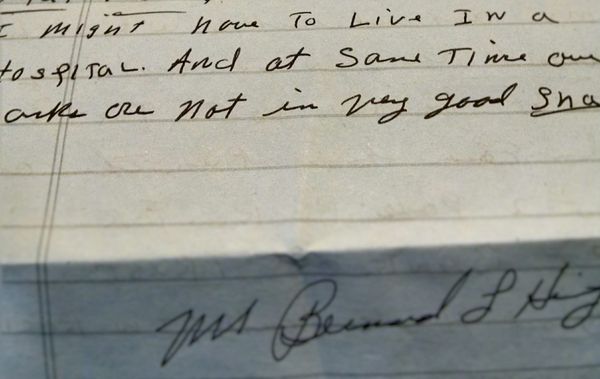 I might have To Live In a
Hospital. And at Same Time our
are not in very good Sha
Mr Bernard L